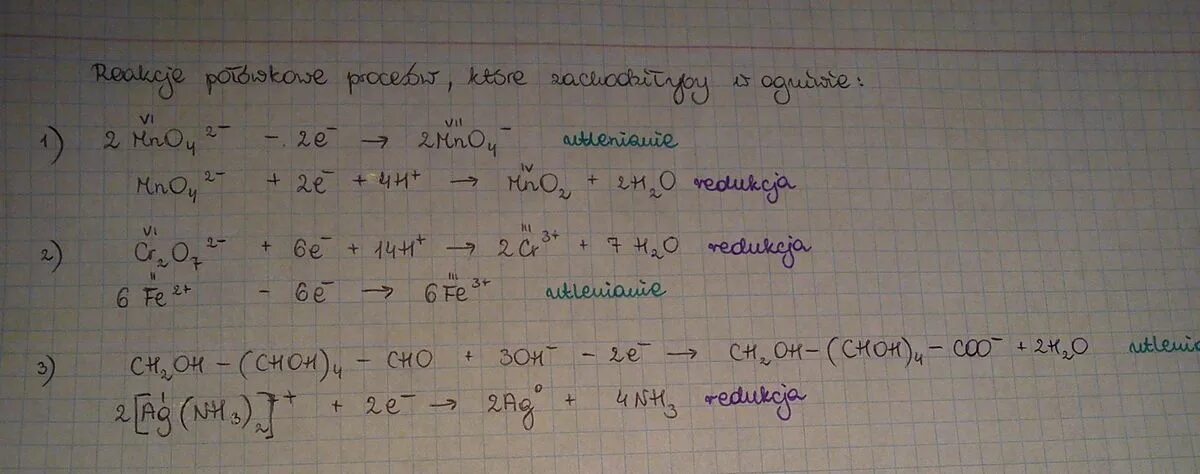 Reakcje połówkowe procesów, które zachodziłyby w ogniwie:
1) 2 MnO₄²⁻ (VI) - 2e⁻ → 2MnO₄⁻ (VII) utlenianie
MnO₄²⁻ + 2e⁻ + 4H⁺ → MnO₂ (IV) + 2H₂O redukcja
2) Cr₂O₇²⁻ (VI) + 6e⁻ + 14H⁺ → 2Cr³⁺ (III) + 7 H₂O redukcja
6 Fe²⁺ (II) - 6e⁻ → 6Fe³⁺ (III) utlenianie
3) CH₂OH-(CHOH)₄-CHO + 3OH⁻ - 2e⁻ → CH₂OH-(CHOH)₄-COO⁻ + 2H₂O utlenia
2[Ag(NH₃)₂]⁺ (I) + 2e⁻ → 2Ag⁰ + 4NH₃ redukcja